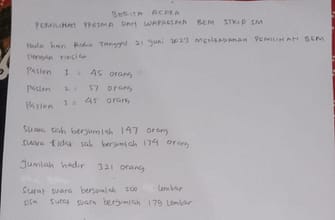 BERITA ACARA
PEMILIHAN PRESMA DAN WAPRESMA BEM STKIP SM
Pada hari Rabu Tanggal 21 Juni 2023 MENGADAKAN PEMILIHAN BEM
Dengan rincian
Paslon 1 = 45 orang
Paslon 2 = 57 orang
Paslon 3 = 45 orang
Suara sah berjumlah 147 orang
Suara tidak sah berjumlah 174 orang
Jumlah hadir 321 orang
Surat suara berjumlah 500 lembar
Sisa surat suara berjumlah 179 lembar